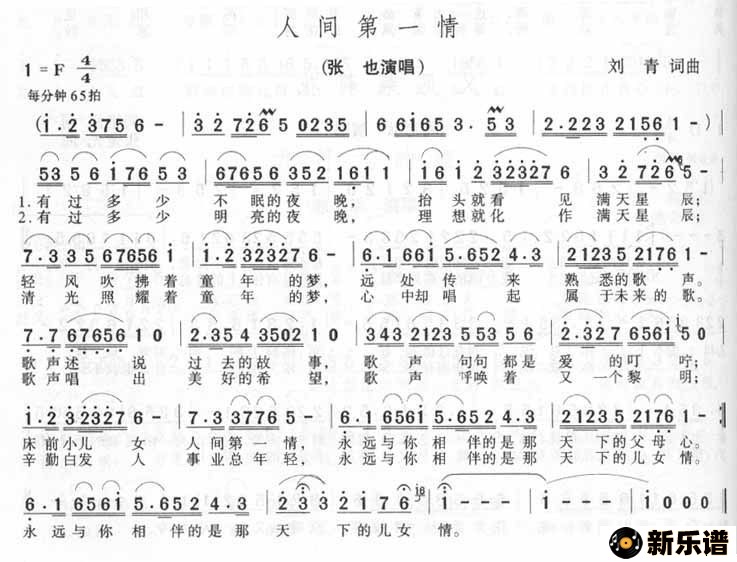 人间第一情
1=F 4/4
(张 也演唱)
刘 青 词曲
每分钟65拍
(1.2 3756- | 32 7265 0235 | 66165 3.53 | 2.223 21561-)
535 6176 53 | 67656 352 1611 | 1612 323276- | 32 72665-
1.有过多少 不眠的夜晚, 抬头就看 见 满天星 辰;
2.有过多少 明亮的夜晚, 理想就化 作 满天星 辰;
7.335 676561 | 1.2323276- | 6.1 6615.652 4.3 | 21235 21765-
轻 风吹拂着 童 年 的梦, 远处传 来 熟悉的歌 声。
清 光照耀着 童 年 的梦, 心中却唱 起 属于未来的歌。
7.7676565 10 | 2.354 3502 10 | 343 2123 553 56 | 2.327 6561 50
歌声述 说 过去的故 事, 歌 声句句都是 爱 的叮 咛;
歌声唱 出 美好的希 望, 歌 声呼唤着 又 一个黎 明;
1.2 323276- | 7.3 37765- | 6.1 6561 5.652 4.3 | 21235 21761-
床前小儿 女 人间第一 情, 永远与你 相 伴的是那 天 下的父母心。
辛勤白发 人 事业总年轻, 永远与你 相 伴的是那 天 下的儿女情。
6.1 6561 5.652 4.3 | 233 2176 | 1--- | 1--- | 1000
永 远与你 相 伴的是那 天 下的儿女 情。
新乐谱